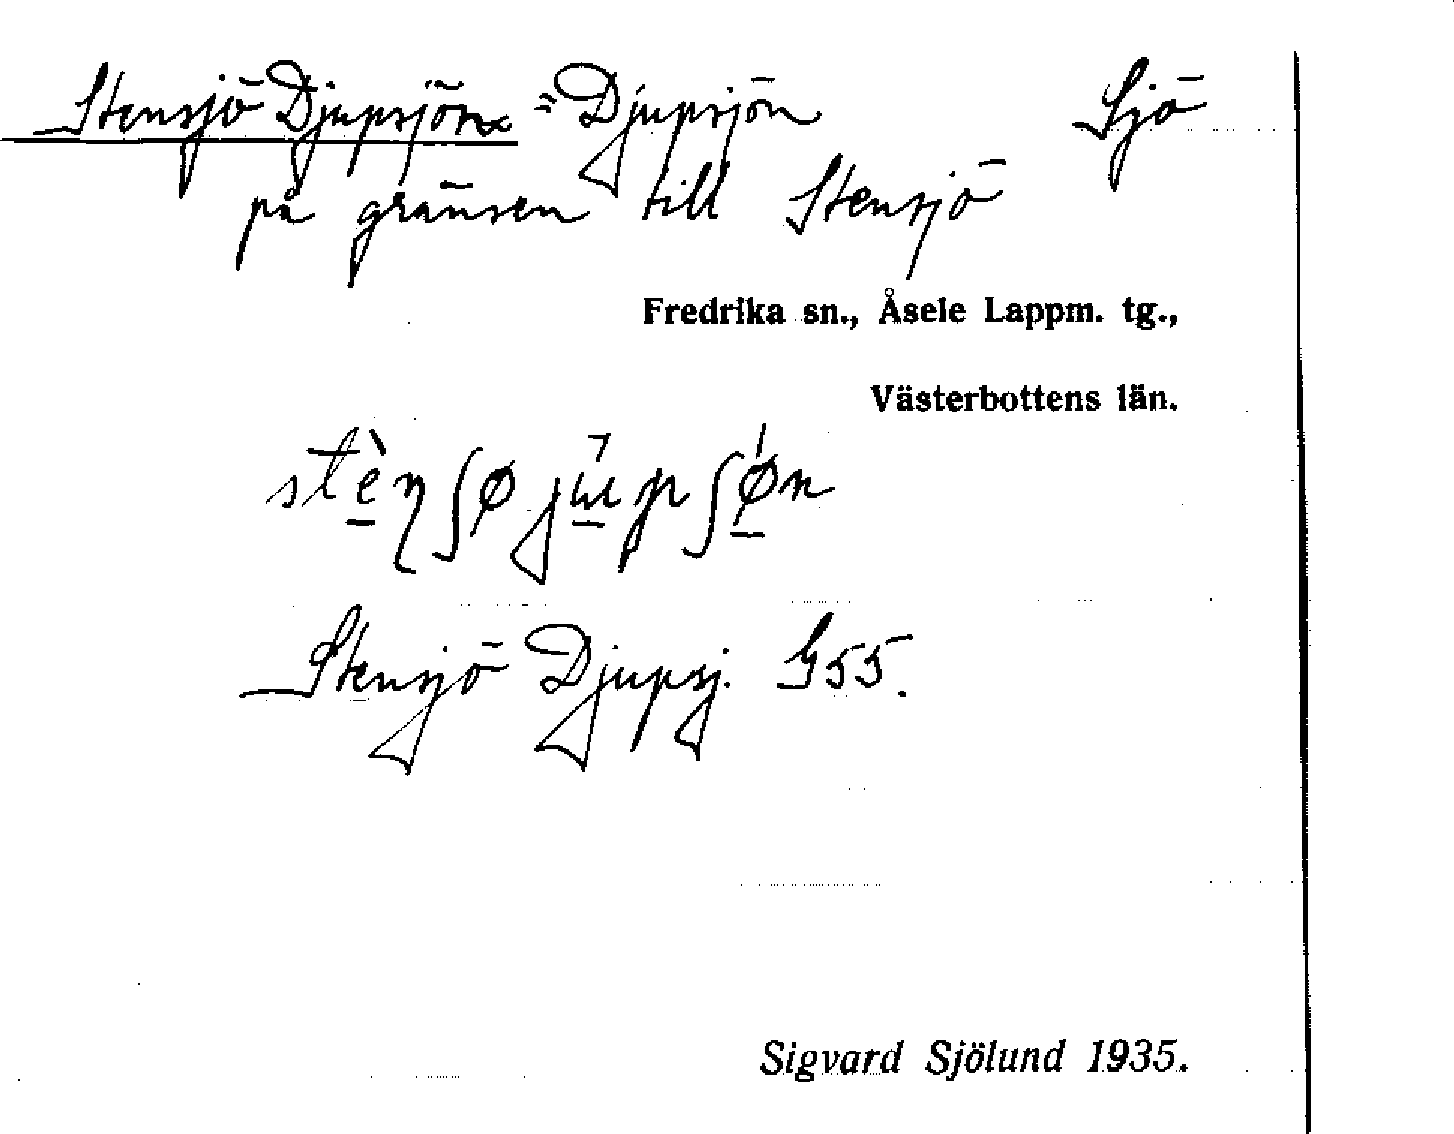 Stensjö Djupsjön × = Djupsjön Sjö
på gränsen till Stensjö
Fredrika sn., Åsele Lappm. tg.,
Västerbottens län.
stèŋʃø jɯpʃøn
Stensjö Djupsj. G55.
Sigvard Sjölund 1935.